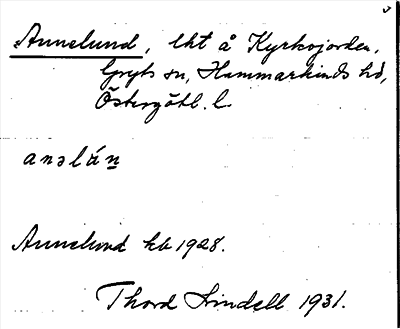 Annelund, lht å Kyrkojorden,
Gryts sn, Hammarkinds hd,
Östergötl. l.
anəlún
Annelund kb 1928.
Thord Lindell 1931.